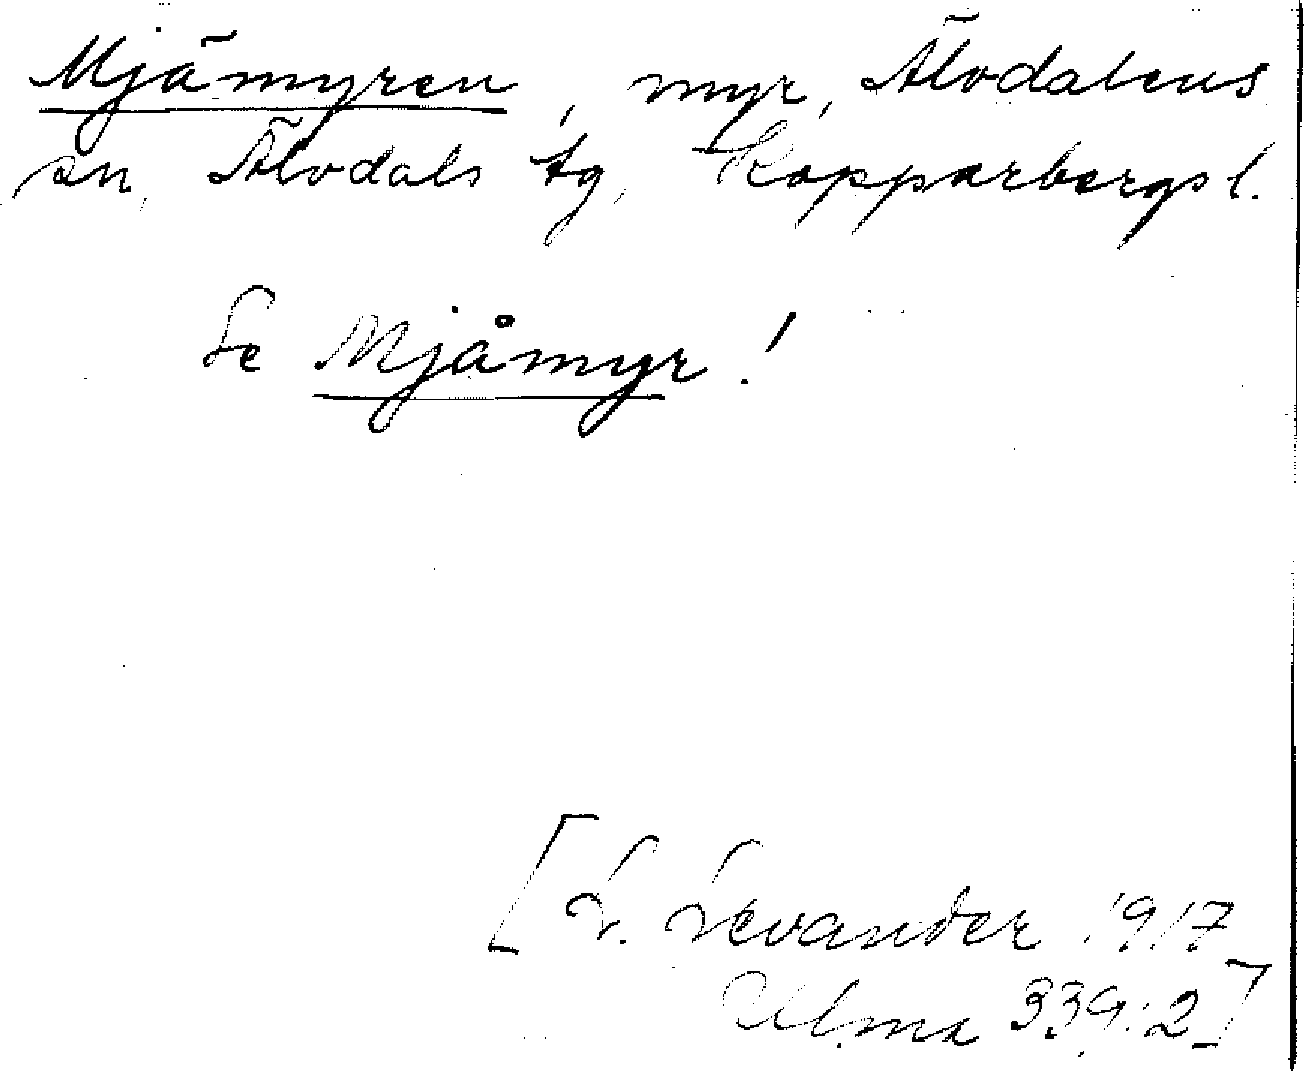 Mjämyren, myr, Älvdalens
sn, Älvdals tg, Kopparbergs l.
Se Mjåmyr!
[L. Levander 1917
Ulma 339:2]